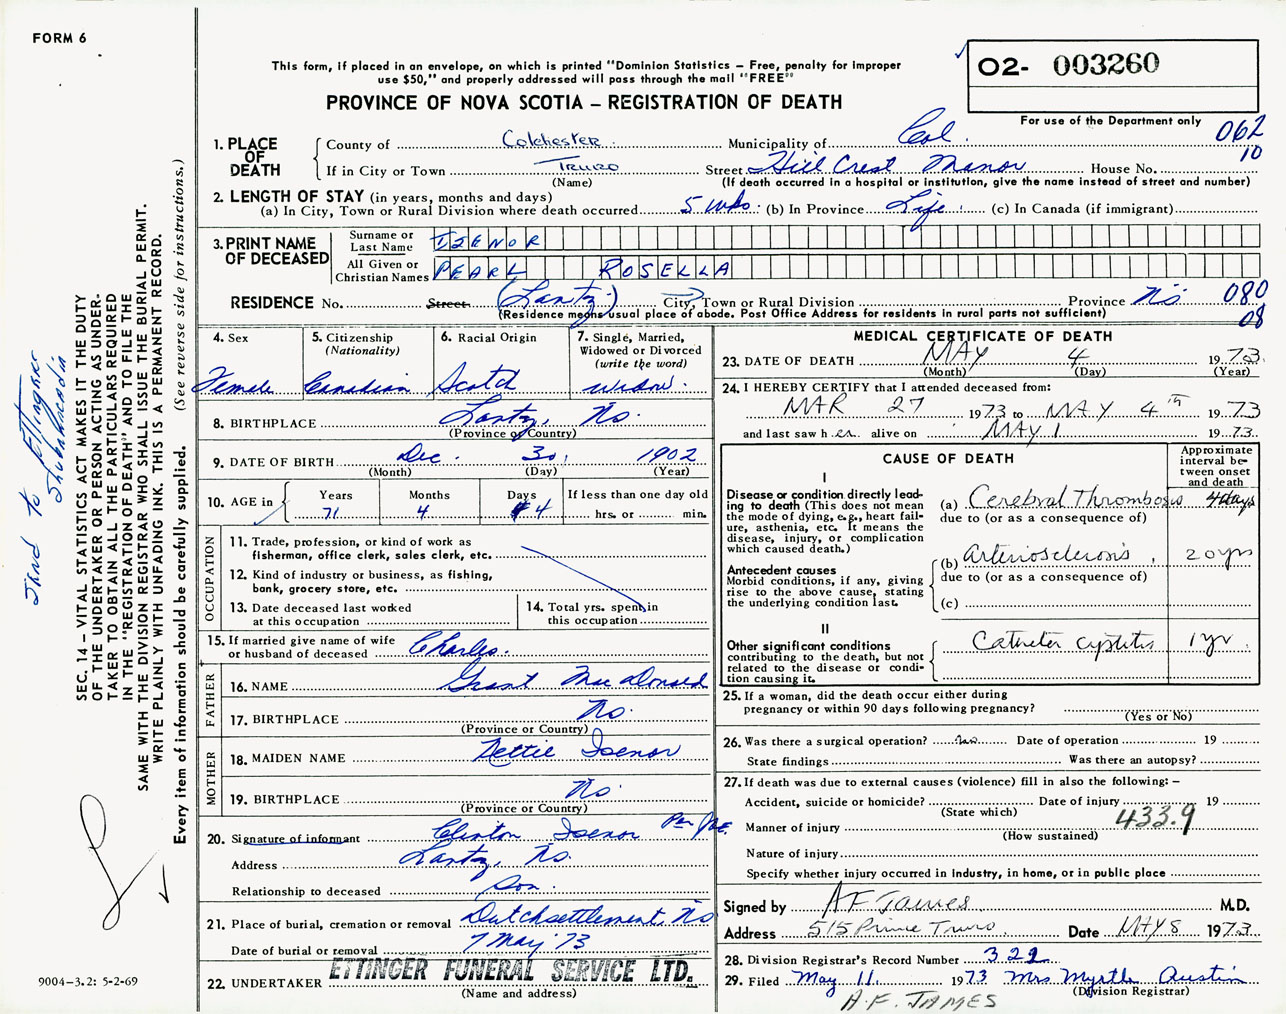 FORM 6
This form, if placed in an envelope, on which is printed "Dominion Statistics – Free, penalty for improper
use $50," and properly addressed will pass through the mail "FREE"
PROVINCE OF NOVA SCOTIA – REGISTRATION OF DEATH
02- 003260
For use of the Department only
062
10
1. PLACE OF DEATH
County of Colchester Municipality of Col.
If in City or Town Truro Street Hill Crest Manor House No.
(Name) (If death occurred in a hospital or institution, give the name instead of street and number)
2. LENGTH OF STAY (in years, months and days)
(a) In City, Town or Rural Division where death occurred 5 wks. (b) In Province Life. (c) In Canada (if immigrant)
3. PRINT NAME OF DECEASED
Surname or Last Name ISENOR
All Given or Christian Names PEARL ROSELLA
RESIDENCE No. Street (Lantz) City, Town or Rural Division Province NS 080
(Residence means usual place of abode. Post Office Address for residents in rural parts not sufficient) 08
4. Sex Female
5. Citizenship (Nationality) Canadian
6. Racial Origin Scotch
7. Single, Married, Widowed or Divorced (write the word) widow.
8. BIRTHPLACE Lantz, NS.
(Province or Country)
9. DATE OF BIRTH Dec. 30, 1902
(Month) (Day) (Year)
10. AGE in Years Months Days If less than one day old
71 4 4 hrs. or min.
OCCUPATION
11. Trade, profession, or kind of work as
fisherman, office clerk, sales clerk, etc.
12. Kind of industry or business, as fishing,
bank, grocery store, etc.
13. Date deceased last worked
at this occupation
14. Total yrs. spent in
this occupation
15. If married give name of wife
or husband of deceased Charles.
FATHER
16. NAME Grant MacDonald
17. BIRTHPLACE NS.
(Province or Country)
MOTHER
18. MAIDEN NAME Nettie Isenor
19. BIRTHPLACE NS.
(Province or Country)
20. Signature of informant Clinton Isenor Per
Address Lantz, NS.
Relationship to deceased Son.
21. Place of burial, cremation or removal Dutchsettlement, NS
Date of burial or removal 7 May '73
22. UNDERTAKER ETTINGER FUNERAL SERVICE LTD.
(Name and address)
MEDICAL CERTIFICATE OF DEATH
23. DATE OF DEATH MAY 4 1973.
(Month) (Day) (Year)
24. I HEREBY CERTIFY that I attended deceased from:
MAR 27 1973 to MAY 4th 1973
and last saw her alive on MAY 1 1973.
CAUSE OF DEATH
Approximate interval between onset and death
I
Disease or condition directly leading to death (This does not mean the mode of dying, e.g., heart failure, asthenia, etc. It means the disease, injury, or complication which caused death.)
(a) Cerebral Thrombosis 4 days
due to (or as a consequence of)
Antecedent causes
Morbid conditions, if any, giving rise to the above cause, stating the underlying condition last.
(b) Arteriosclerosis, 20 yrs
due to (or as a consequence of)
(c)
II
Other significant conditions
contributing to the death, but not related to the disease or condition causing it.
Catheter cystitis 1 yr.
25. If a woman, did the death occur either during
pregnancy or within 90 days following pregnancy?
(Yes or No)
26. Was there a surgical operation? no. Date of operation 19
State findings Was there an autopsy?
27. If death was due to external causes (violence) fill in also the following: –
Accident, suicide or homicide? Date of injury 19
(State which)
433.9
Manner of injury
(How sustained)
Nature of injury
Specify whether injury occurred in industry, in home, or in public place
Signed by AF James M.D.
Address 515 Prince Truro. Date MAY 8 1973
28. Division Registrar's Record Number 322
29. Filed May 11, 1973 Mrs Myrtle Austin
(Division Registrar)
A.F. JAMES
SEC. 14 – VITAL STATISTICS ACT MAKES IT THE DUTY
OF THE UNDERTAKER OR PERSON ACTING AS UNDER-
TAKER TO OBTAIN ALL THE PARTICULARS REQUIRED
IN THE "REGISTRATION OF DEATH" AND TO FILE THE
SAME WITH THE DIVISION REGISTRAR WHO SHALL ISSUE THE BURIAL PERMIT.
WRITE PLAINLY WITH UNFADING INK. THIS IS A PERMANENT RECORD.
Every item of information should be carefully supplied. (See reverse side for instructions.)
Send to Ettingers
Shubenacadie
9004-3.2: 5-2-69